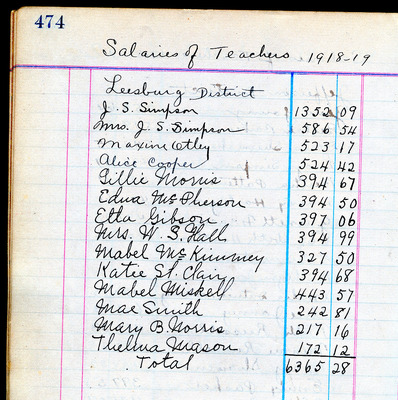 474
Salaries of Teachers 1918-19
Leesburg District
J. S. Simpson 1352 09
Mrs. J. S. Simpson 586 54
Maxine Otley 523 17
Alice Cooper 524 42
Morris 394 67
Edna McPherson 394 50
Etta Gibson 397 06
Mrs. W. S. Hall 394 99
Mabel McKimmey 327 50
Katie St. Clair 394 68
Mabel Miskell 443 57
Mae Smith 242 81
Mary B Norris 217 16
Thelma Mason 172 12
Total 6365 28